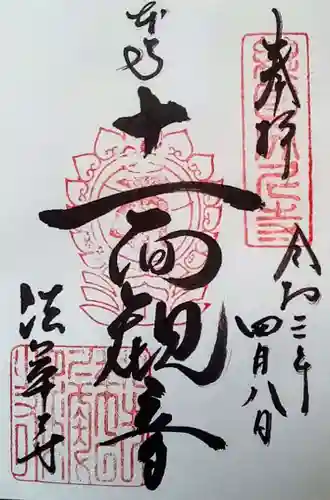 奉拝
令和二年
四月八日
本尊
十一面観音
法華寺